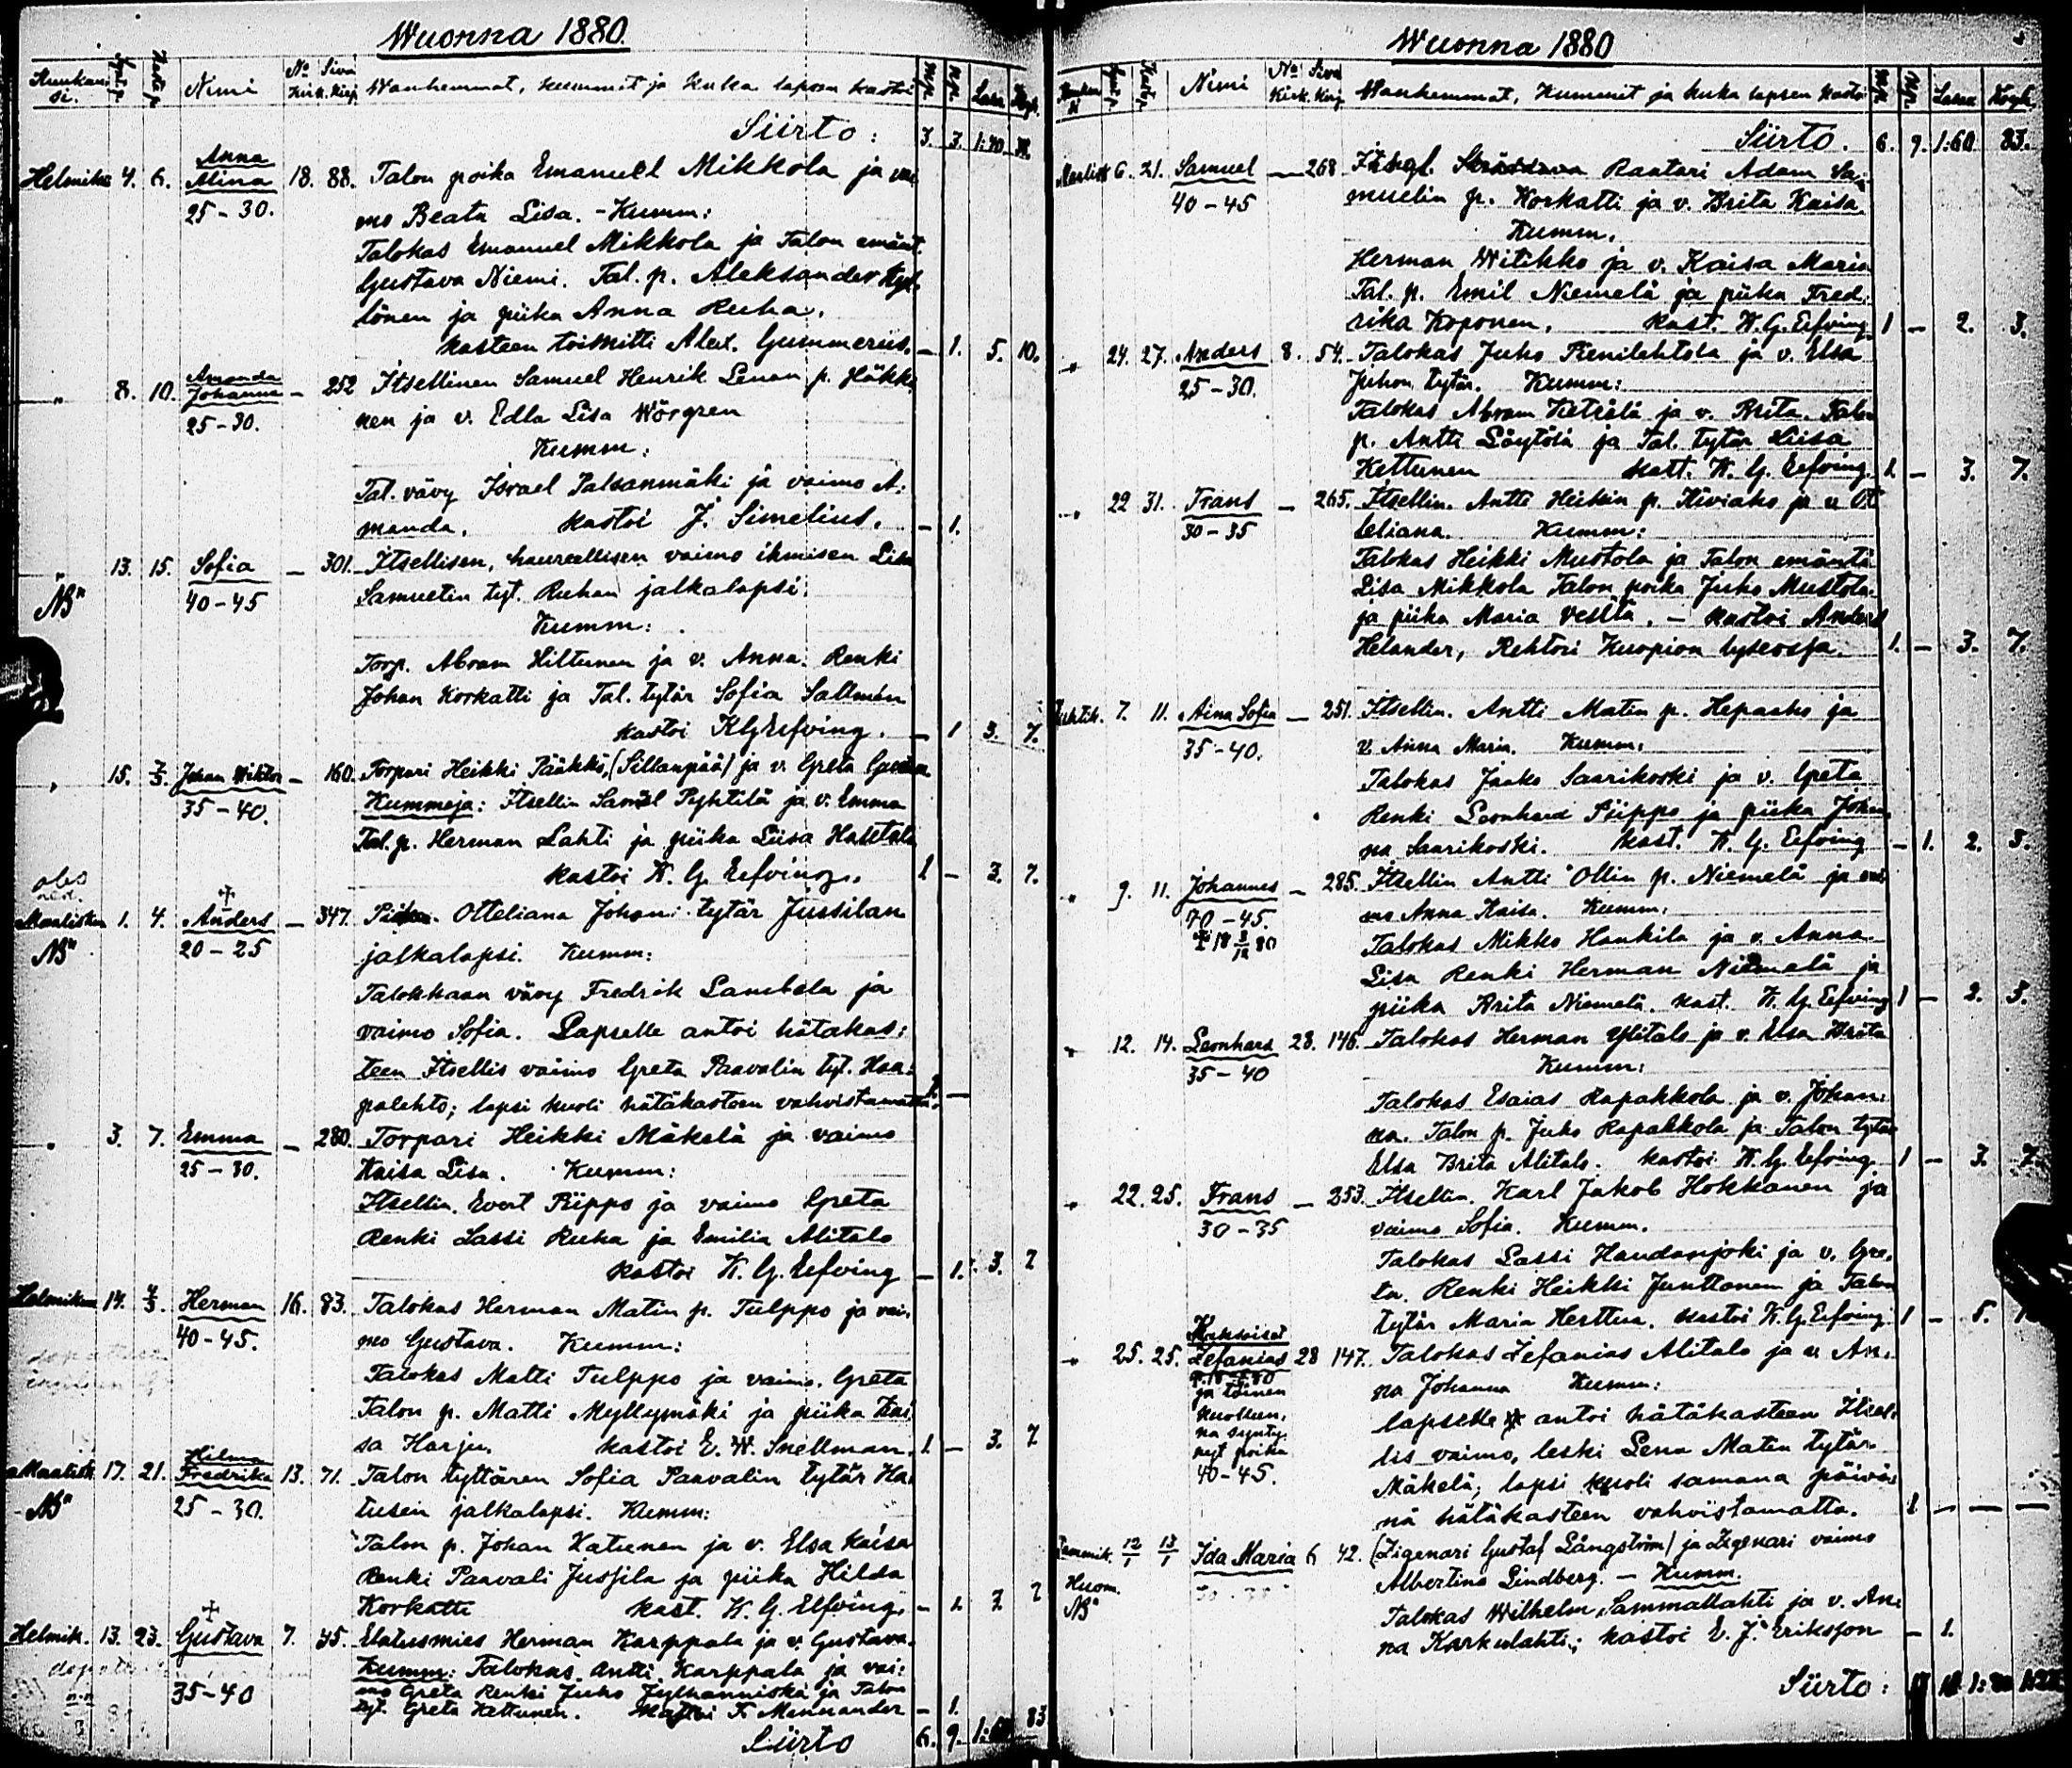 Wuonna 1880.
Nimi No Kirk. Sivu Kirj. Wanhemmat, kummit ja kuka lapsen kastoi
Siirto: 3. 3. 1:40
Helmik. 4. 6. Anna Alina 18. 88. Talon poika Emanuel Mikkola ja vai
25-30. mo Beata Lisa. - Kumm:
Talokas Emanuel Mikkola ja Talon emänt.
Gustava Niemi. Tal. p. Aleksander Kyl
lönen ja piika Anna Ruha.
Kasteen toimitti Alex. Gummerus. - 1. 5. 10.
" 8. 10. Amanda Johanna - 252 Itsellinen Samuel Henrik Lenan p. Häkki
25-30. nen ja v. Edla Lisa Wörgren
Kumm:
Tal. vävy Israel Palsanmäki ja vaimo A:
manda. Kastoi J. Simelius. - 1.
" 13. 15. Sofia - 301. Itsellisen, haureellisen vaimo ihmisen Lisa
NB" 40-45 Samuelin tyt. Ruhan jalkalapsi.
Kumm:
Torp. Abram Hiltunen ja v. Anna. Renki
Johan Korkatti ja Tal. tytär Sofia Sallmén
Kastoi K G Eefving. - 1 3. 7.
" 15. 7/3. Johan Wiktor - 160. Torpari Heikki Pääkkö, (Sillanpää) ja v. Greta
35-40. Kummeja: Itsellin Samul Pyhtilä ja v. Emma
Tal. p. Herman Lahti ja piika Liisa
Kastoi K. G. Eefving. 1 - 3. 7.
Maalisk. 1. 4. Anders - 347. Otteliana Johani tytär Jussilan
NB" 20-25 jalkalapsi. Kumm:
Talokkaan vävy Fredrik Lambela ja
vaimo Sofia. Lapselle antoi hätakas:
teen Itsellis vaimo Greta Paavalin tyt. Haa:
palehto; lapsi kuoli hätäkasteen vahvistamatta. 1. -
" 3. 7. Emma - 280. Torpari Heikki Mäkelä ja vaimo
25-30. Kaisa Lisa. Kumm:
Itsellin. Evert Piippo ja vaimo Greta
Renki Lassi Ruha ja Emilia Alitalo
Kastoi K. G. Eefving - 1. 3. 7
Helmikuu 14. 4/3. Herman 16. 83. Talokas Herman Matin p. Tulppo ja vai.
40-45. mo Gustava. Kumm:
Talokas Matti Tulppo ja vaimo. Greta
Talon p. Matti Myllymäki ja piika Kai
sa Harju. Kastoi E. W. Snellman. 1. - 3. 7
Maalisk. 17. 21. Hilma Fredrika 13. 71. Talon tyttären Sofia Paavalin tytär Ha:
NB" 25-30. tusen jalkalapsi. Kumm:
Talon p. Johan Katunen ja v. Elsa Kaisa
Renki Paavali Jussila ja piika Hilda
Korkatti Kast. K. G. Elfving. - 1. 3. 7
Helmik. 13. 23. Gustava 7. 45. Elatusmies Herman Karppala ja v. Gustava.
Kumm: Talokas Antti Karppala ja vai:
35-40 mo Greta Renki Juho Jylhänniska ja Talon
tyt. Greta Kettunen. Kastoi F. Mennander - 1.
Siirto 6. 9. 83
Wuonna 1880
Nimi No Kirk. Sivu Kirj. Wanhemmat, Kummit ja kuka lapsen kastoi
Siirto. 6. 9. 1:60 83.
Maalisk 6. 21. Samuel - 268 Itsel. Rantari Adam Sa:
40-45 muelin p. Korkatti ja v. Brita Kaisa.
Kumm.
Herman Witikko ja v. Kaisa Maria
Tal. p. Emil Niemelä ja piika Fred:
rika Koponen. Kast. K. G. Eefving. 1 - 2. 3.
" 24. 27. Anders 8. 54. Talokas Juho Pienilehtola ja v. Elsa
25-30. Juhon tytär. Kumm:
Talokas Abram Kietälä ja v. Brita. Talon
p. Antti Löytölä ja Tal. tytär Liisa
Kettunen Kast. K. G. Eefving. 1. - 3. 7.
" 22 31. Frans - 265. Itsellin. Antti Heikin p. Kiviaho ja v. Ot
30-35 teliana. Kumm:
Talokas Heikki Mustola ja Talon emäntä
Lisa Mikkola Talon poika Juho Mustola
ja piika Maria Vesita. - Kastoi Anders
Helander, Rehtori Kuopion lyseossa. 1. - 3. 7.
Huhtik. 7. 11. Aina Sofia - 251. Itsellin. Antti Matin p. Hepoaho ja
35-40. v. Anna Maria. Kumm.
Talokas Jaako Saarikoski ja v. Greta
Renki Leonhard Piippo ja piika Johan
na Saarikoski. Kast. K. G. Eefving - 1. 2. 5.
" 9. 11. Johannes - 285. Itsellin Antti Ollin p. Niemelä ja vai
40-45. mo Anna Kaisa. Kumm.
Talokas Mikko Hankila ja v. Anna
Lisa Renki Herman Niemelä ja
piika Brita Niemelä. Kast. K. G. Eefving 1 - 2. 5.
" 12. 14. Leonhard 28. 146. Talokas Herman Ylitalo ja v. Elsa Brita
35-40 Kumm:
Talokas Esaias Rapakkola ja v. Johan:
na. Talon p. Juho Rapakkola ja Talon tytär
Elsa Brita Alitalo. Kastoi K. G. Eefving. 1 - 3. 7
" 22. 25. Frans - 253. Itsellin. Karl Jakob Hokkanen ja
30-35 vaimo Sofia. Kumm.
Talokas Lassi Haudanjoki ja v. Gre.
ta. Renki Heikki Junttonen ja Talon
tytär Maria Herttua. Kastoi K. G. Eefving 1 - 5.
" 25. 25. Kaksoiset Zefanias 28 147. Talokas Zefanias Alitalo ja v. An.
ja toinen na Johanna Kumm:
kuolleen. lapselle antoi hätäkasteen Itsel.
na synty. lis vaimo, leski Lena Matin tytär
nyt poika Mäkelä; lapsi kuoli samana päivä:
40-45. nä hätäkasteen vahvistamatta. 1. - - -
Tammik. 12/1 13/1 Ida Maria 6 42. (Zigenari Gustaf Långström) ja Zigenari vaimo
Huom. NB" Albertina Lindberg. - Kumm.
Talokas Wilhelm Sammallahti ja v. An:
na Karkulahti; Kastoi E. J. Eriksson - 1.
Siirto: